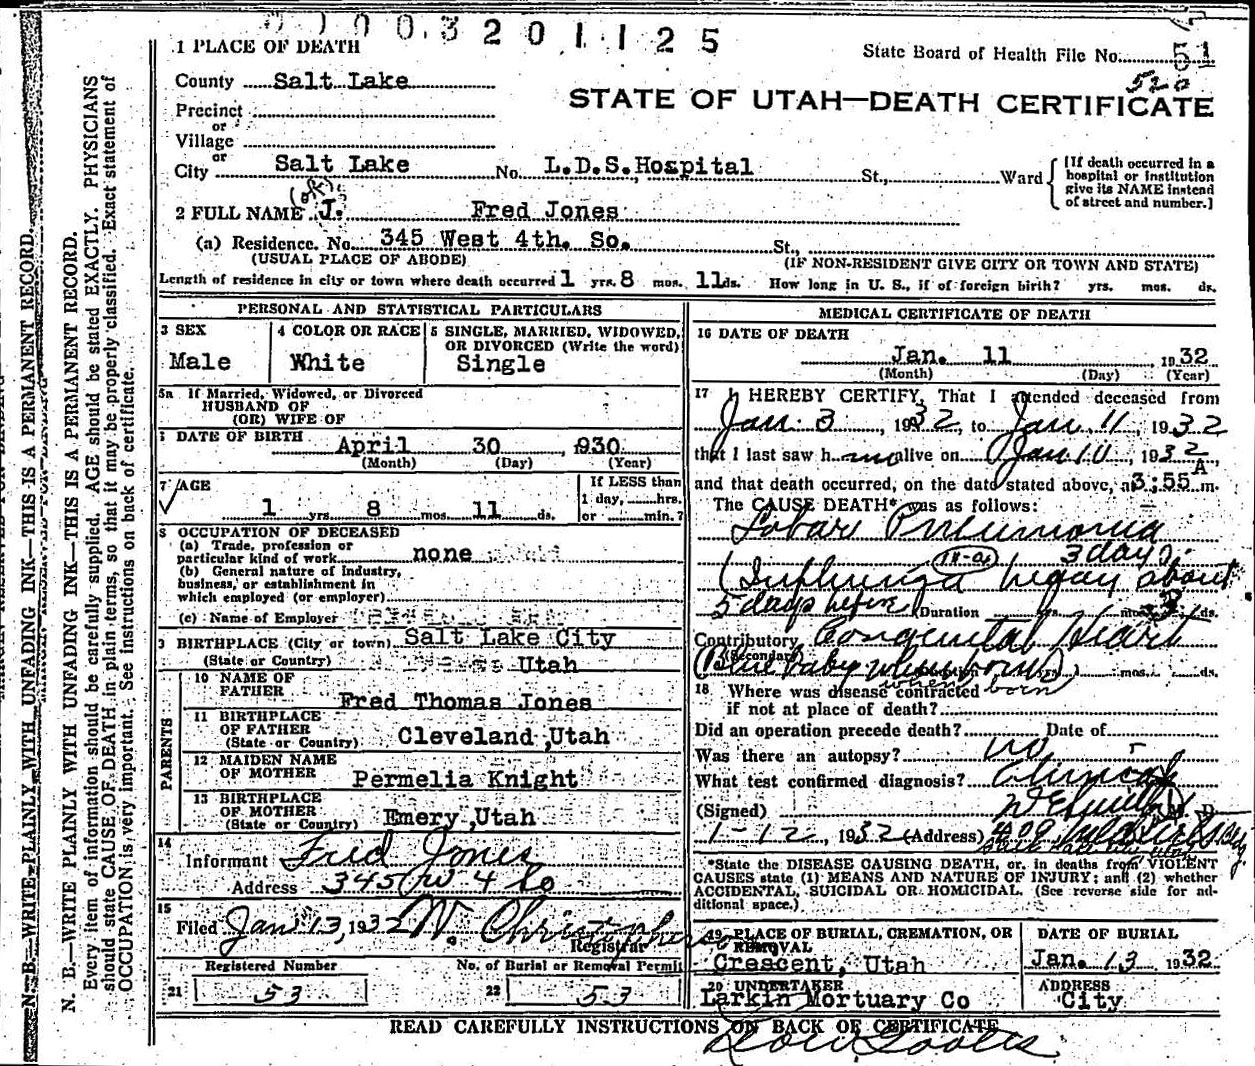 003201125
1 PLACE OF DEATH
State Board of Health File No. 51
County Salt Lake
520
STATE OF UTAH—DEATH CERTIFICATE
Precinct
or
Village
or
City Salt Lake No. L.D.S.Hospital St., Ward
[If death occurred in a hospital or institution give its NAME instead of street and number.]
(ok)
2 FULL NAME J. Fred Jones
(a) Residence. No. 345 West 4th. So. St.,
(USUAL PLACE OF ABODE) (IF NON-RESIDENT GIVE CITY OR TOWN AND STATE)
Length of residence in city or town where death occurred 1 yrs. 8 mos. 11 ds. How long in U. S., if of foreign birth? yrs. mos. ds.
PERSONAL AND STATISTICAL PARTICULARS
3 SEX
Male
4 COLOR OR RACE
White
5 SINGLE, MARRIED, WIDOWED, OR DIVORCED (Write the word)
Single
5a If Married, Widowed, or Divorced
HUSBAND OF
(OR) WIFE OF
DATE OF BIRTH April 30 1930
(Month) (Day) (Year)
7 AGE
1 yrs. 8 mos. 11 ds.
If LESS than
1 day, hrs.
or min.?
8 OCCUPATION OF DECEASED
(a) Trade, profession or
particular kind of work none
(b) General nature of Industry,
business, or establishment in
which employed (or employer)
(c) Name of Employer
9 BIRTHPLACE (City or town) Salt Lake City
(State or Country) Utah
PARENTS
10 NAME OF
FATHER Fred Thomas Jones
11 BIRTHPLACE
OF FATHER
(State or Country) Cleveland ,Utah
12 MAIDEN NAME
OF MOTHER Permelia Knight
13 BIRTHPLACE
OF MOTHER
(State or Country) Emery ,Utah
14
Informant Fred Jones
Address 345 W 4 So
15
Filed Jan 13, 1932
Registrar
Registered Number
21 53
No. of Burial or Removal Permit
22 53
MEDICAL CERTIFICATE OF DEATH
16 DATE OF DEATH
Jan. 11 1932
(Month) (Day) (Year)
17 I HEREBY CERTIFY, That I attended deceased from
Jan. 3, 1932, to Jan. 11, 1932
that I last saw him alive on Jan 10, 1932,
and that death occurred, on the date stated above, at 3:55 A m.
The CAUSE DEATH* was as follows:
Lobar Pneumonia
3 days.
(Influenza began about
5 days before
Duration yrs. mos. ds.
Contributory Congenital Heart
(Secondary)
(Blue baby when born)
when born
mos. ds.
18 Where was disease contracted
if not at place of death?
Did an operation precede death? Date of
Was there an autopsy? no
What test confirmed diagnosis? Clinical
(Signed) M. D.
1-12, 1932 (Address)
*State the DISEASE CAUSING DEATH, or, in deaths from VIOLENT
CAUSES state (1) MEANS AND NATURE OF INJURY; and (2) whether
ACCIDENTAL, SUICIDAL OR HOMICIDAL. (See reverse side for additional space.)
19 PLACE OF BURIAL, CREMATION, OR
REMOVAL
Crescent, Utah
DATE OF BURIAL
Jan. 13 1932
20 UNDERTAKER
Larkin Mortuary Co
ADDRESS
City
READ CAREFULLY INSTRUCTIONS ON BACK OF CERTIFICATE
N. B.—WRITE PLAINLY WITH UNFADING INK—THIS IS A PERMANENT RECORD.
N. B.—WRITE PLAINLY WITH UNFADING INK—THIS IS A PERMANENT RECORD.
Every item of information should be carefully supplied. AGE should be stated EXACTLY. PHYSICIANS
should state CAUSE OF DEATH in plain terms, so that it may be properly classified. Exact statement of
OCCUPATION is very important. See instructions on back of certificate.